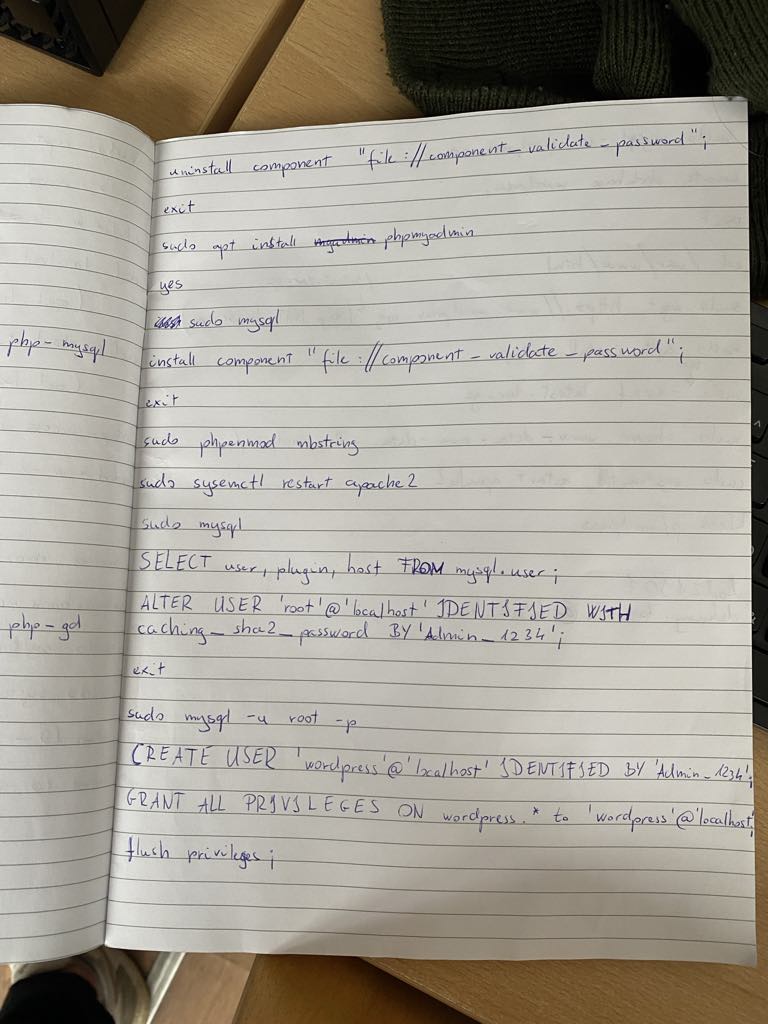 php-mysql
php-gd
uninstall component "file://component_validate_password";
exit
sudo apt install myadmin phpmyadmin
yes
sudo mysql
install component "file://component_validate_password";
exit
sudo phpenmod mbstring
sudo sysemctl restart apache2
sudo mysql
SELECT user, plugin, host FROM mysql.user;
ALTER USER 'root'@'localhost' IDENTIFIED WITH
caching_sha2_password BY 'Admin_1234';
exit
sudo mysql -u root -p
CREATE USER 'wordpress'@'localhost' IDENTIFIED BY 'Admin_1234';
GRANT ALL PRIVILEGES ON wordpress.* to 'wordpress'@'localhost;
flush privileges;